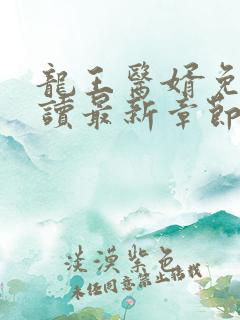 龍王醫婿免
讀最新章節
淡漠紫色
未经同意禁止搭我